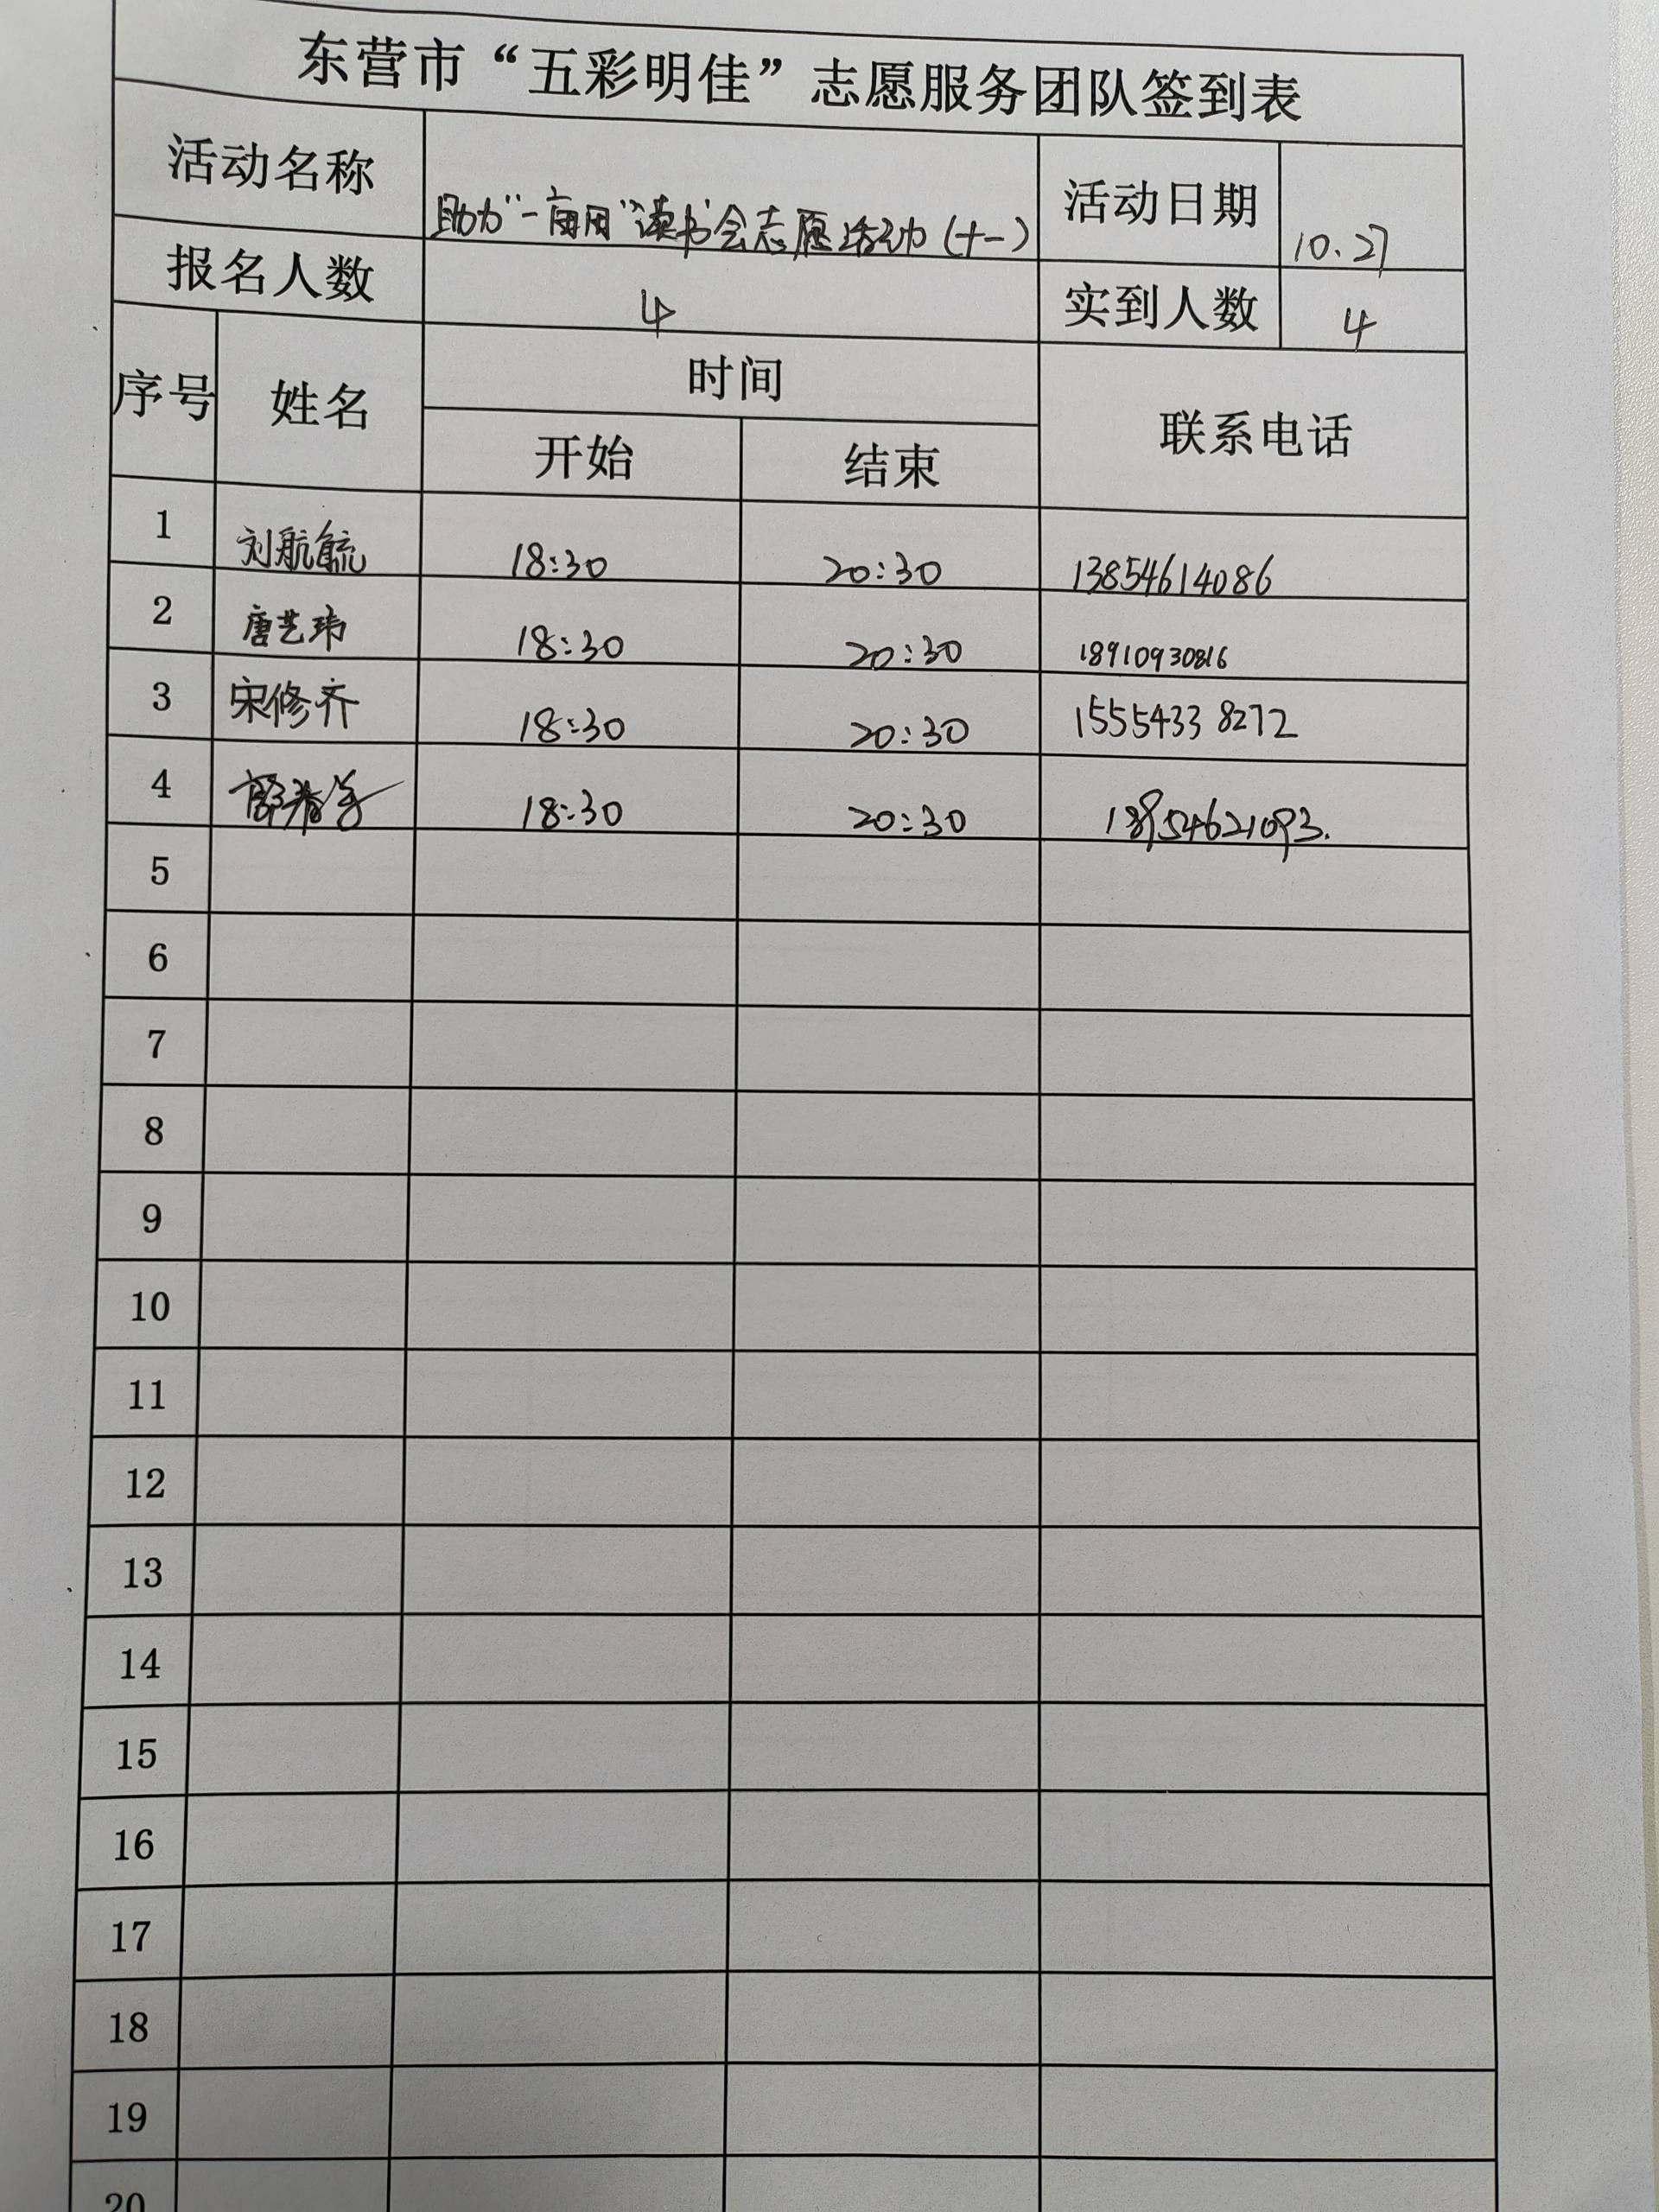 东营市“五彩明佳”志愿服务团队签到表
活动名称 助力“一亩田”读书会志愿活动（十一） 活动日期 10.27
报名人数 4 实到人数 4
序号 姓名 时间 联系电话
开始 结束
1 刘航毓 18:30 20:30 13854614086
2 唐艺玮 18:30 20:30 18910930816
3 宋修齐 18:30 20:30 15554338272
4 18:30 20:30 13954621093.
5
6
7
8
9
10
11
12
13
14
15
16
17
18
19
20